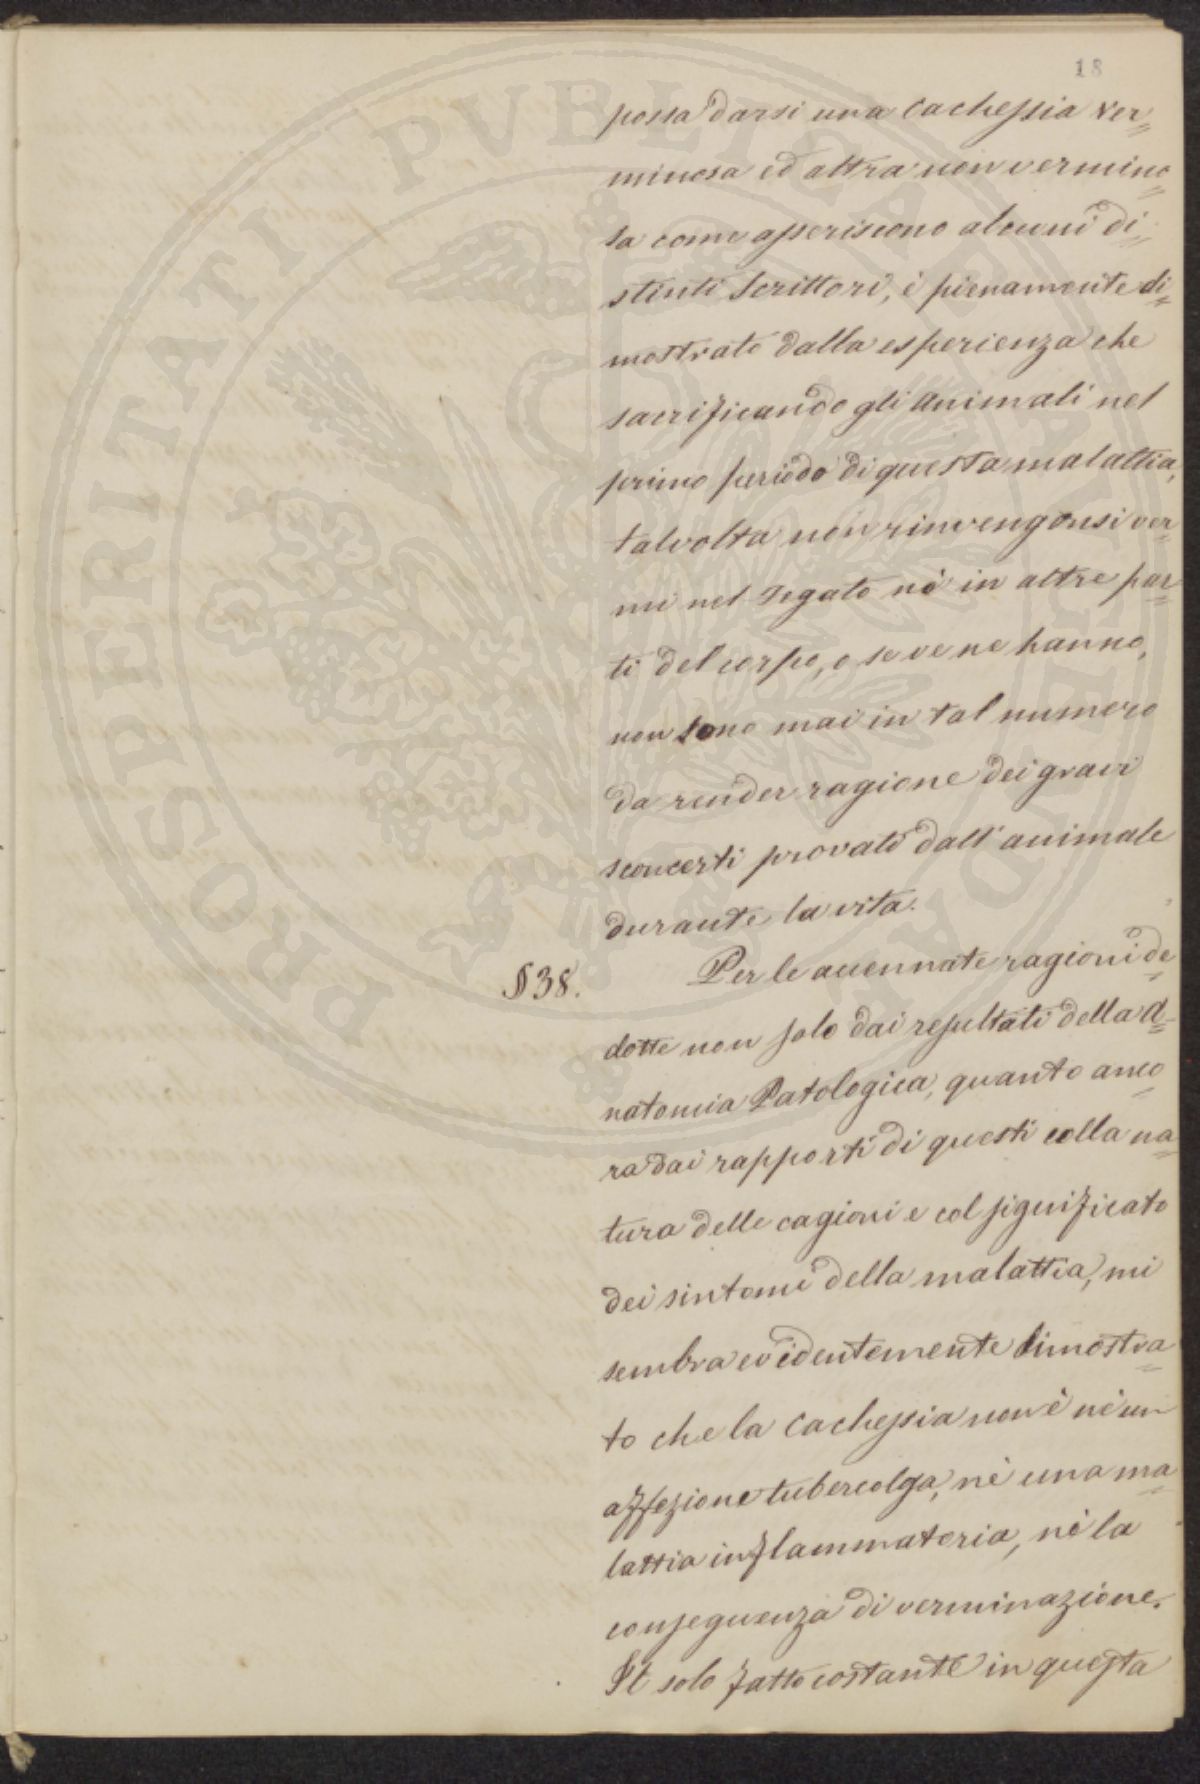 18
possa darsi una Cachessia ver=
minosa ed altra non vermino=
sa come asseriscono alcuni di=
stinti Scrittori, è pienamente di=
mostrato dalla esperienza che
sacrificando gli animali nel
primo periodo di questa malattia,
talvolta non rinvengonsi ver=
mi nel fegato nè in altre par=
ti del corpo, o se ve ne hanno,
non sono mai in tal numero
da render ragione dei gravi
sconcerti provati dall'animale
durante la vita.
§ 38. Per le accennate ragioni de=
dotte non solo dai resultati della A=
natomia Patologica, quanto anco=
ra dai rapporti di questi colla na=
tura delle cagioni e col significato
dei sintomi della malattia, mi
sembra evidentemente dimostra=
to che la Cachessia non è nè un
affezione tubercolosa, nè una ma=
lattia inflammatoria, nè la
conseguenza di verminazione.
Il solo fatto costante in questa
PROSPERITATI PVBLICAE AVGENDAE